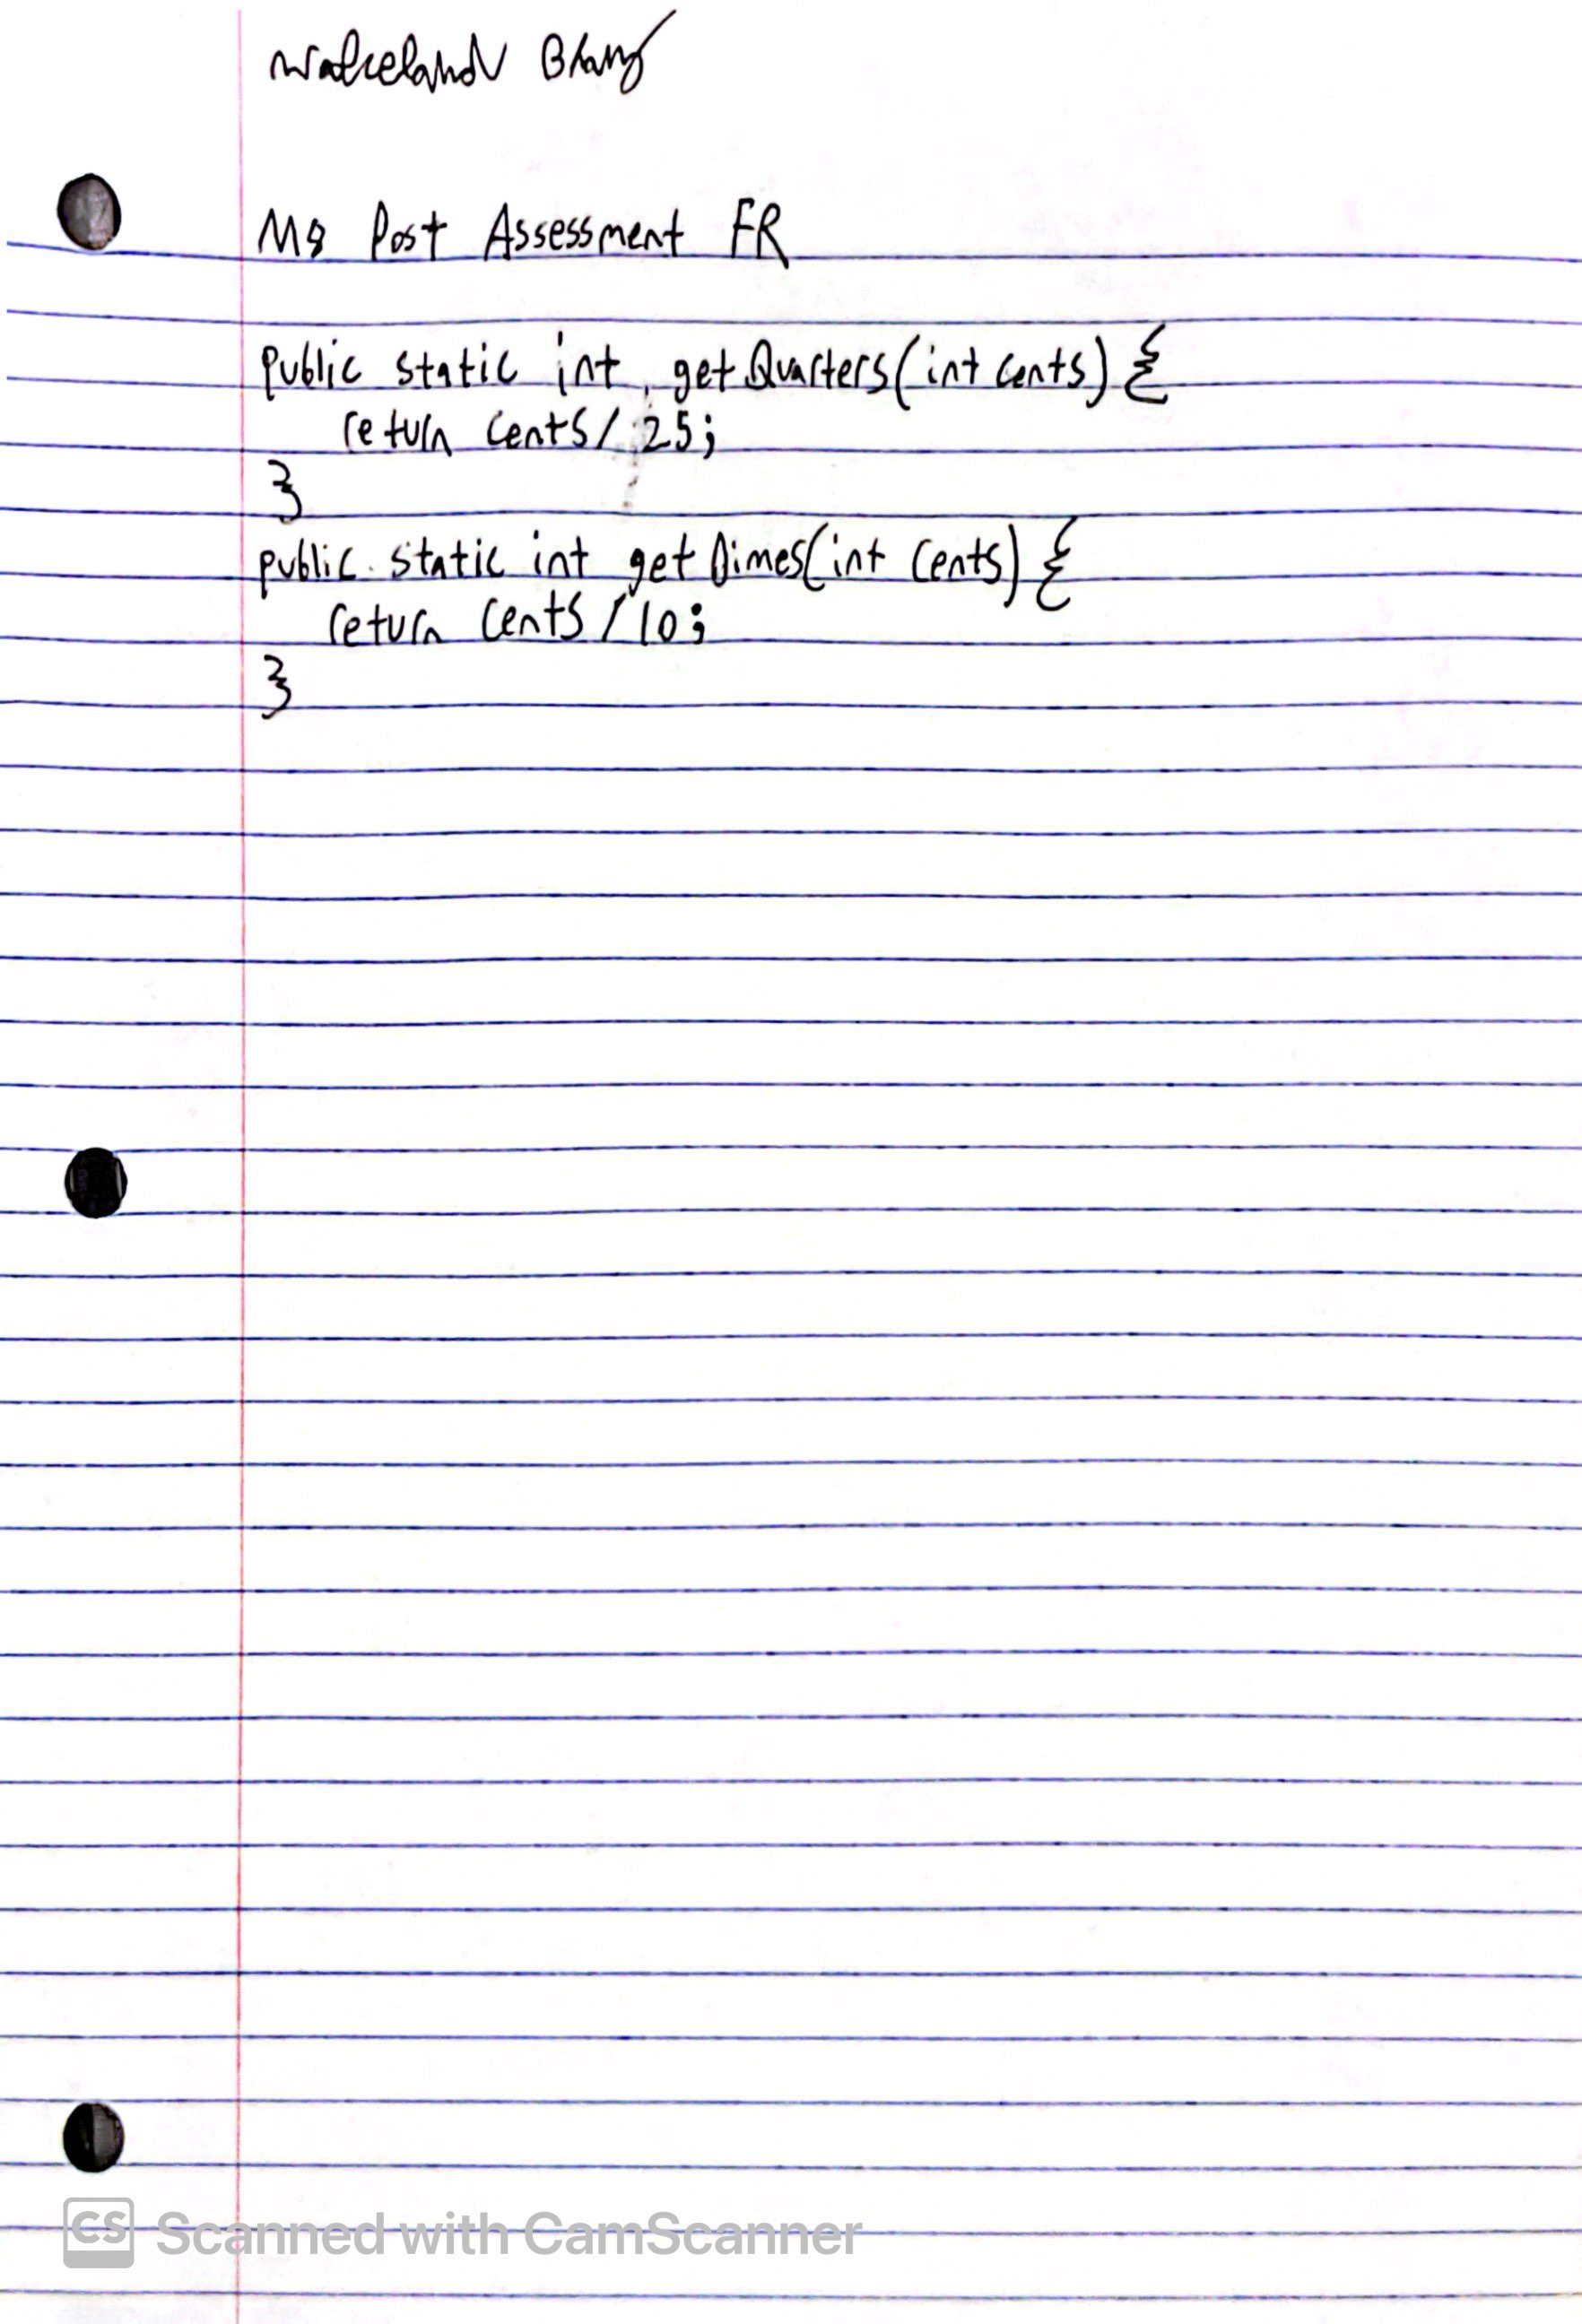 M8 Post Assessment FR
public static int getQuarters(int cents) {
return cents / 25;
}
public static int getDimes(int cents) {
return cents / 10;
}
CS Scanned with CamScanner